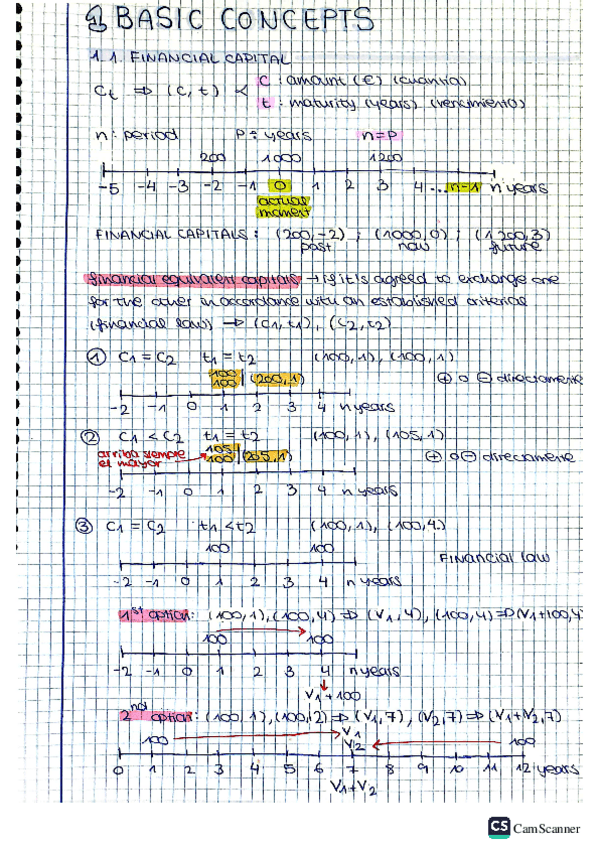 1 BASIC CONCEPTS
1.1. FINANCIAL CAPITAL
Ct ⇒ (C, t) < C : amount (€) (cuantía)
t : maturity (years) (vencimiento)
n : period P = years n=p
200 1000 1200
-5 -4 -3 -2 -1 0 1 2 3 4 ... n-1 n years
actual
moment
FINANCIAL CAPITALS : (200,-2) ; (1000,0) ; (1200,3)
past now future
financial equivalent capitals → if it's agreed to exchange one
for the other in accordance with an established criterial
(financial law) → (C1,t1), (C2,t2)
① C1 = C2 t1 = t2 (100,1), (100,1)
100
100 | (200,1) ⊕ o ⊖ directamente
-2 -1 0 1 2 3 4 n years
② C1 < C2 t1 = t2 (100,1), (105,1)
arriba siempre
el mayor
105
100 | (205,1) ⊕ o ⊖ directamente
-2 -1 0 1 2 3 4 n years
③ C1 = C2 t1 < t2 (100,1), (100,4)
100 100
FINANCIAL LAW
-2 -1 0 1 2 3 4 n years
1st option: (100,1), (100,4) ⇒ (V1,4), (100,4) ⇒ (V1+100,4
100 100
-2 -1 0 1 2 3 4 n years
V1 + 100
2nd option: (100,1), (100,12) ⇒ (V1,7), (V2,7) ⇒ (V1+V2,7)
100 V1
V2 100
0 1 2 3 4 5 6 7 8 9 10 11 12 years
V1+V2
CS CamScanner